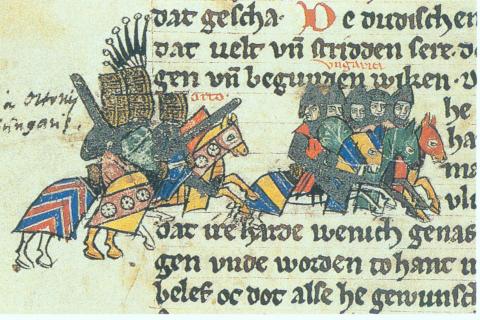 dat gescha. De dudischen
dat velt vn̄ stridden sere. de
vngarici
gen vn̄ begunden wiken. V
otto
à Ottoni
he
ha
ma
vli
dat ire harde wenich genas
gen vnde worden to hant
belef oc dot alse he gewunsch